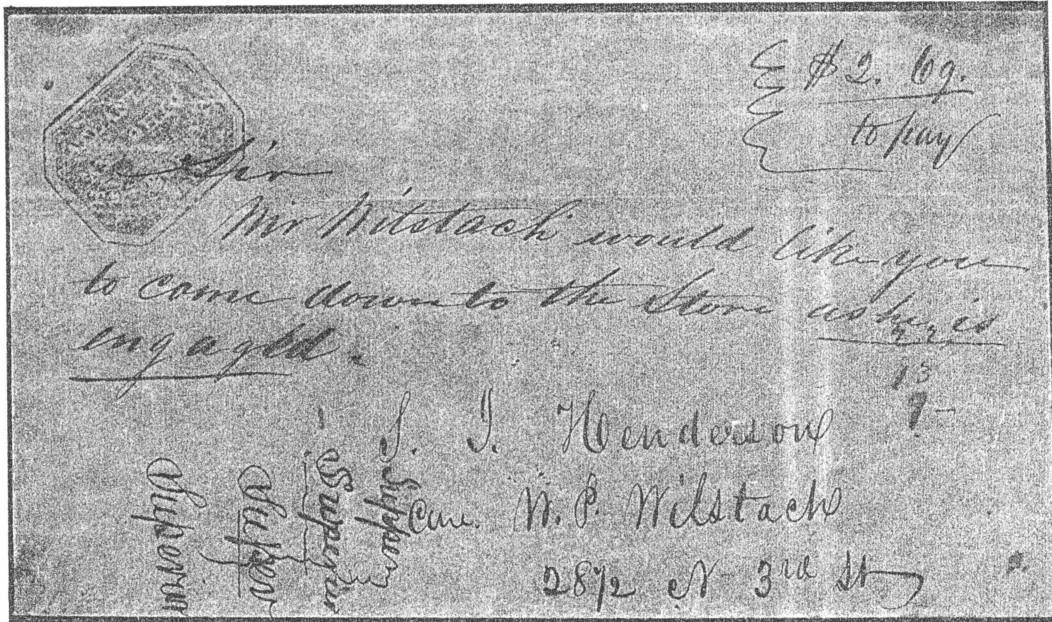 $ 2. 69.
to pay
Sir
Mr Wilstach would like you
to come down to the Store as he is
engaged.
13
7-
S. J. Henderson
Care. W. P. Wilstach
28 1/2 N 3rd St
Superior
Super
Superior
Supper